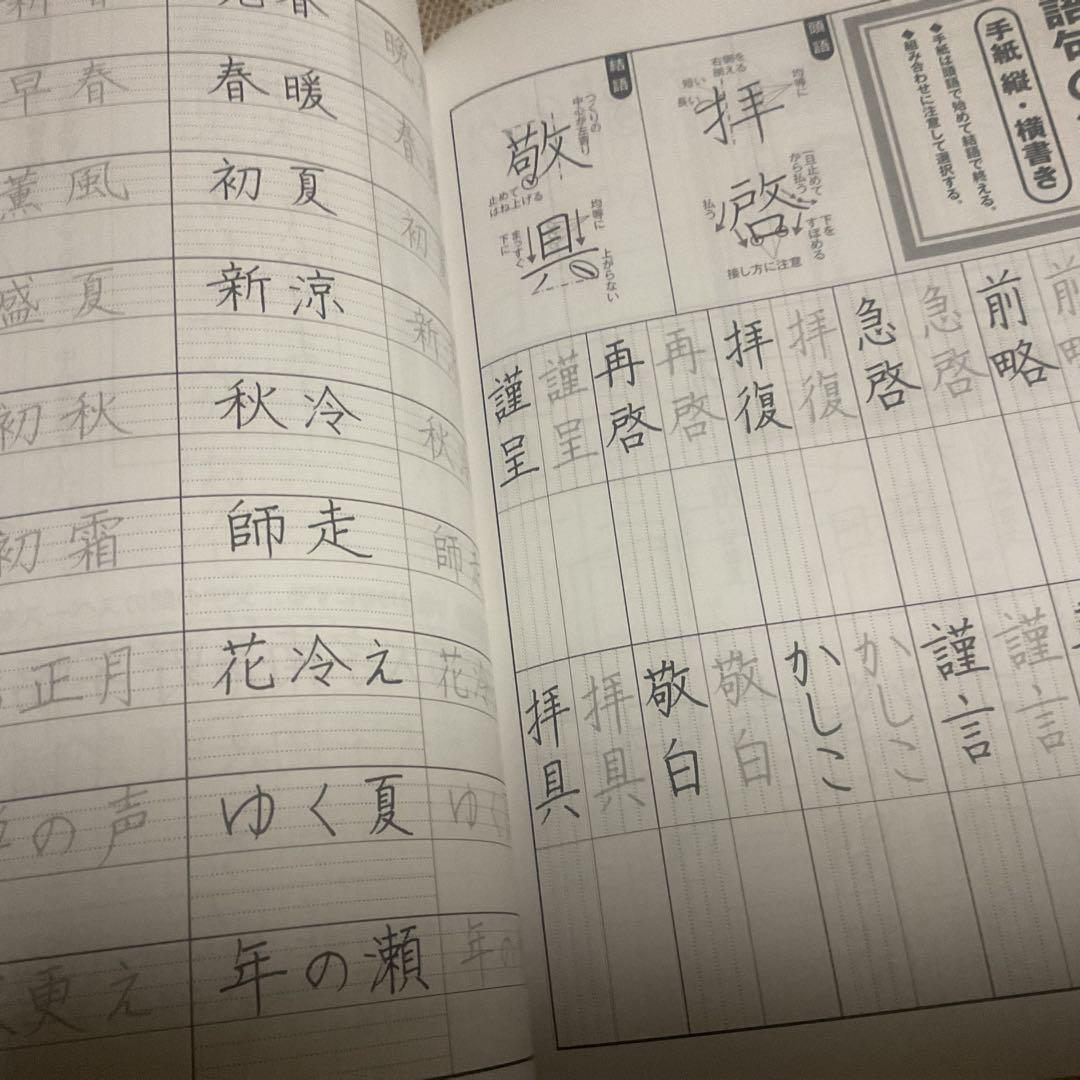 早春
春暖
晩
春
薫風
初夏
初
盛夏
新涼
新
初秋
秋冷
秋
初霜
師走
師走
正月
花冷え
花冷
の声
ゆく夏
ゆく
更え
年の瀬
年の
手紙 縦・横書き
◆手紙は頭語で始めて結語で終える。
◆組み合わせに注意して選択する。
頭語
拝啓
均等に
右側を
短い
長い
一旦止めて
から払う
払う
下を
すぼめる
接し方に注意
結語
敬具
つくりの
中心が左寄り
止めて
はね上げる
均等に
まっすぐ
下に
上がらない
前
略
前略
急啓
急啓
拝復
拝復
再啓
再啓
謹呈
謹呈
謹言
謹言
かしこ
かしこ
敬白
敬白
拝具
拝具